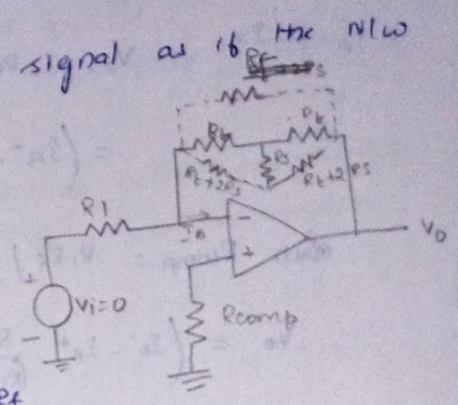 signal as if the N/W
Rt Rt
Rs
Rt+2Rs Rt+2Rs
R1
IB
-
+
Vo
+
Vi=0
-
Rcomp
Rf